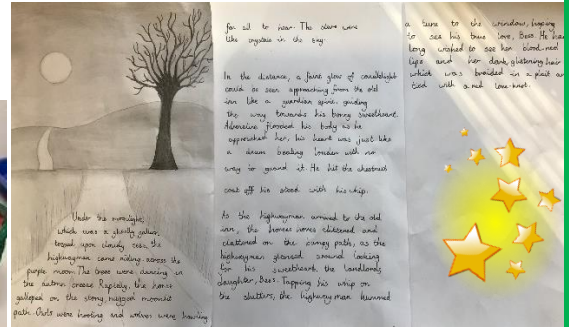 Under the moonlight,
which was a ghostly galleon
tossed upon cloudy seas, the
highwayman came riding across the
purple moor. The trees were dancing in
the autumn breeze. Rapidly, the horse
galloped on the stony, rugged moonlit
path. Owls were hooting and wolves were howling
for all to hear. The stars were
like crystals in the sky.
In the distance, a faint glow of candlelight
could be seen approaching from the old
inn like a guardian spirit, guiding
the way towards his bonny sweetheart.
Adrenaline flooded his body as he
approached her, his heart was just like
a drum beating louder with no
way to guard it. He hit the chestnut
coat off his steed with his whip.
As the highwayman arrived to the old
inn, the horses hooves clattered and
clattered on the path, as the
highwayman glanced around looking
for his sweetheart, the landlords
daughter, Bess. Tapping his whip on
the shutters, the highwayman hummed
a tune to the window, hoping
to see his true love, Bess. He had
long wished to see her blood-red
lips and her dark, glistening hair
which was braided in a plait and
tied with a red love-knot.